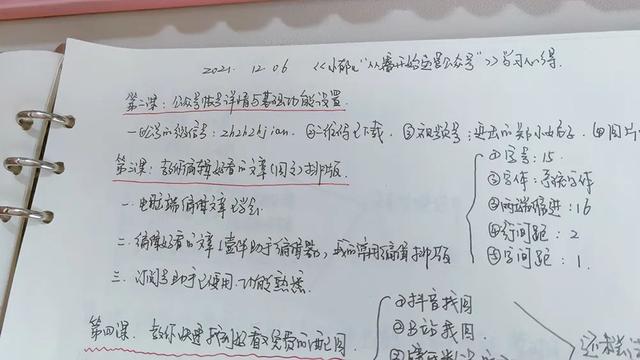 2021. 12. 06 《小郁儿"从零开始运营公众号"》学习心得.
第二课:公众号账号详情与基础功能设置.
一.公众号的微信号:zhzhzkjian. ②二维码已下载. ③视频号:
第三课:教你编辑好看的文章(图文)排版.
①字号:15.
②字体:系统字体
一.电脑端编辑文章已学会.
③两端缩进:16
④行间距:2
二.编辑好看的文章,壹伴助手编辑器,我的常用编辑排版
⑤字间距:1.
三.订阅号助手已使用.功能熟悉.
第四课.教你快速找到好看又免费的配图
①抖音找图
②B站找图